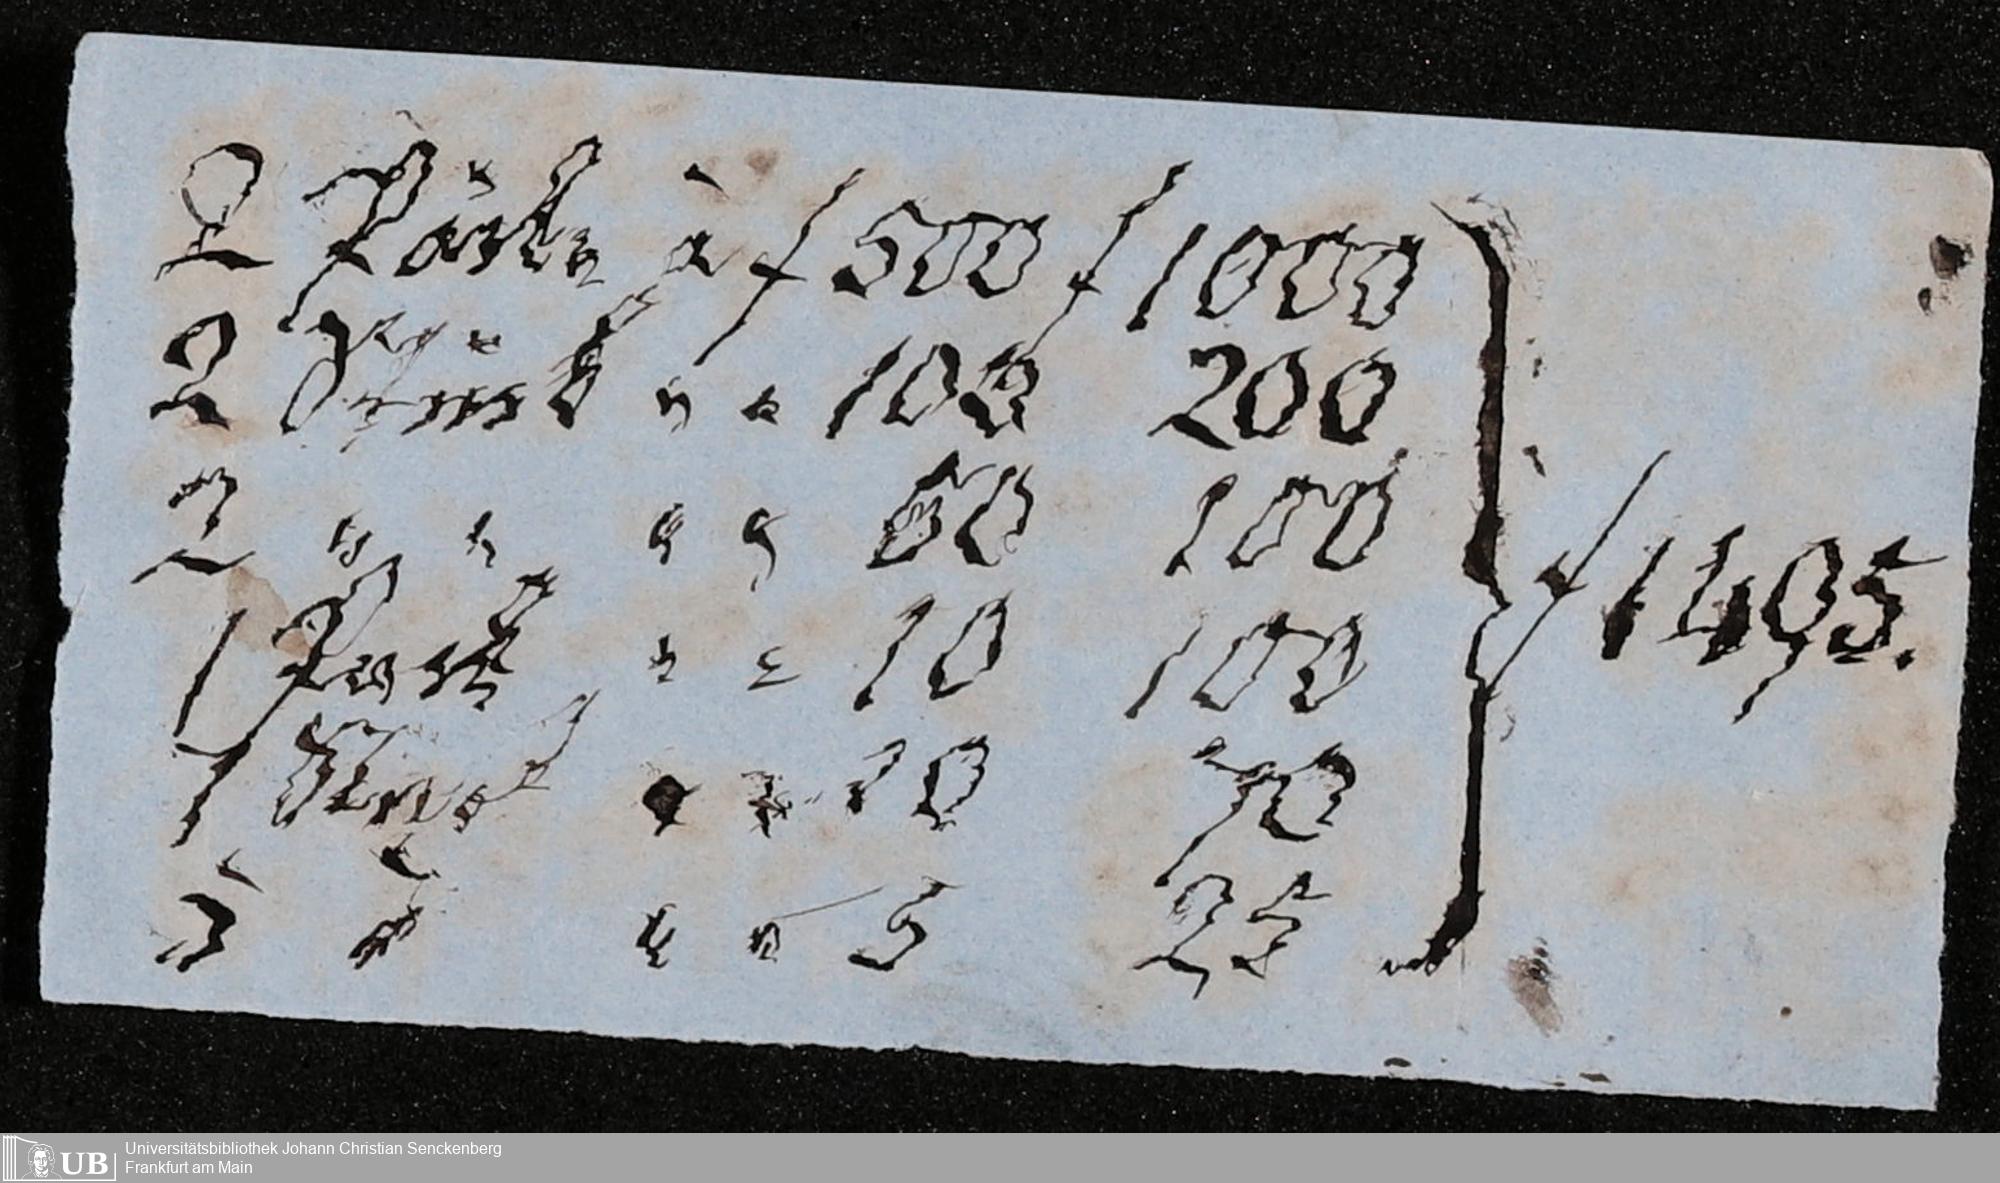 2 Päck à f 500 f 1000
2 Stück " " 100 200
2 " " " " 50 100
1 Pack " " 10 100
1 " " 10 70
5 " " " 5 25
f 1495.
UB
Universitätsbibliothek Johann Christian Senckenberg
Frankfurt am Main